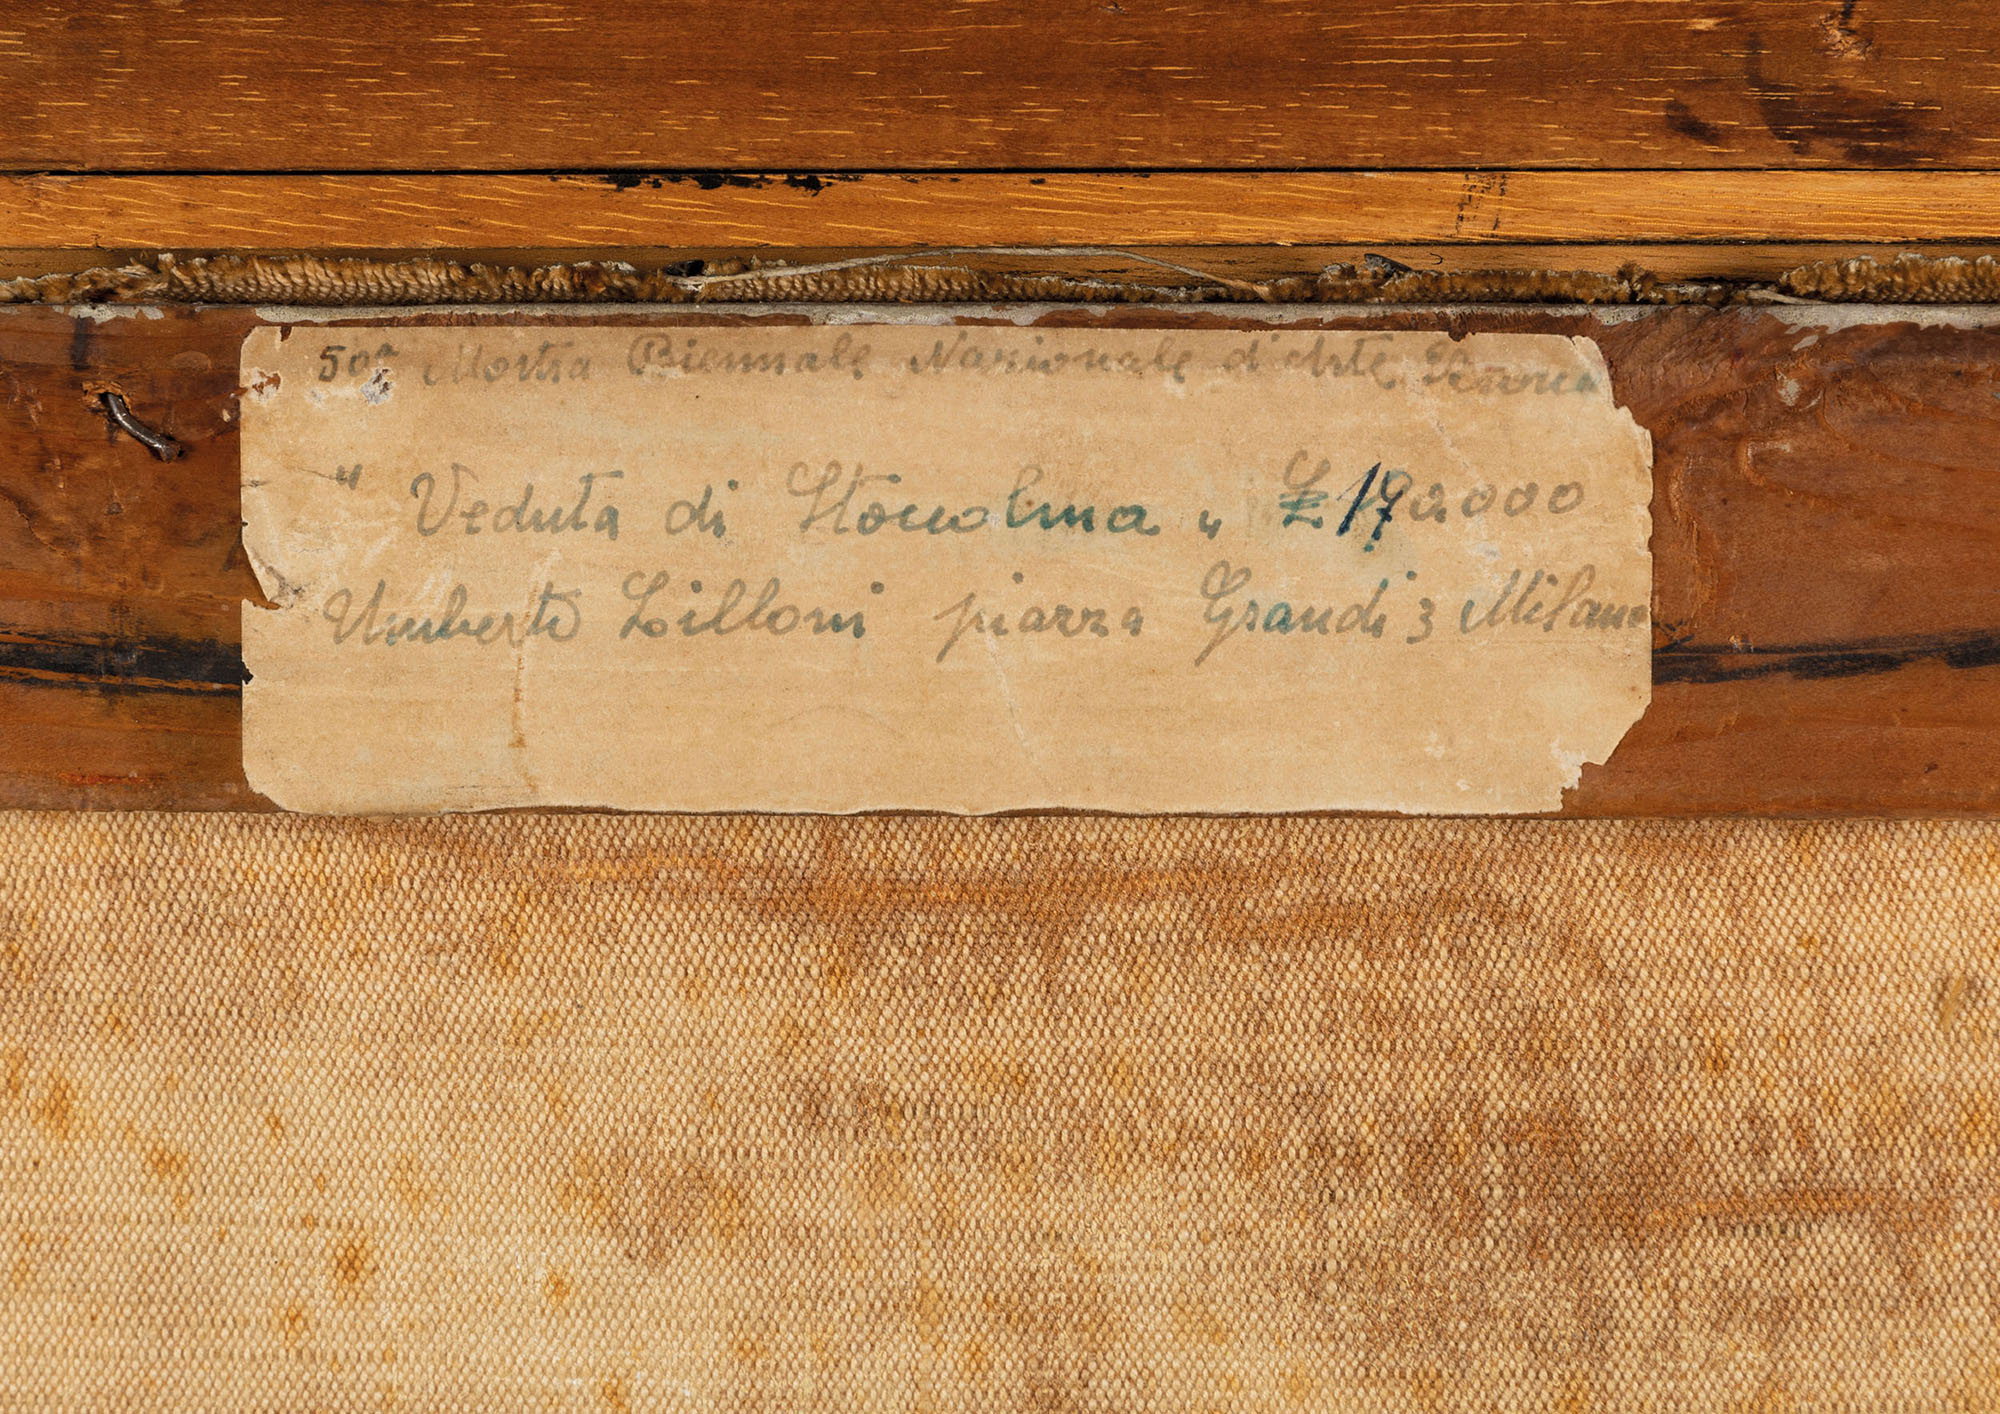 50ª Mostra Biennale Nazionale d'Arte Verona
" Veduta di Stoccolma " £ 170.000
Umberto Lilloni piazza Grandi 3 Milano